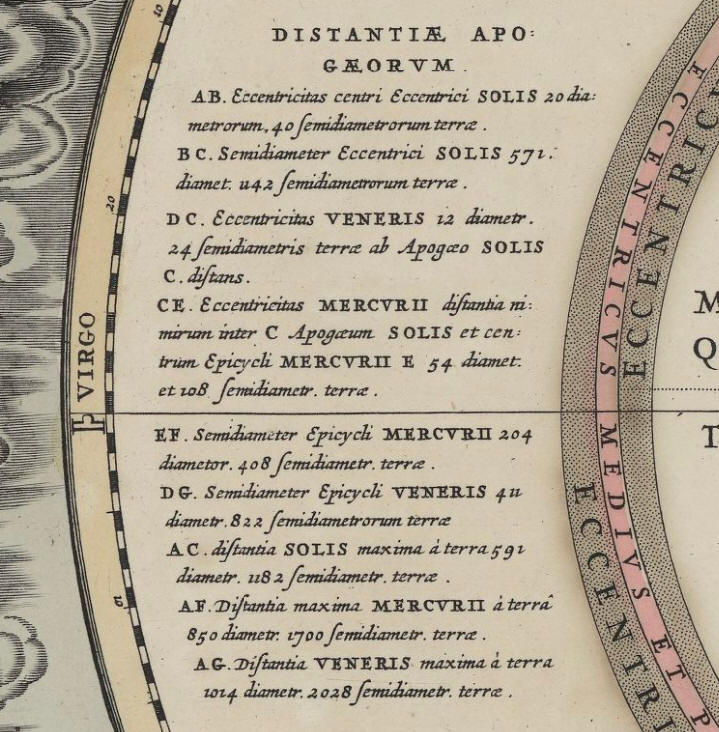 DISTANTIÆ APO:
GÆORVM.
AB. Eccentricitas centri Eccentrici SOLIS 20 dia:
metrorum, 40 semidiametrorum terræ.
BC. Semidiameter Eccentrici SOLIS 571.
diamet. 1142 semidiametrorum terræ.
DC. Eccentricitas VENERIS 12 diametr.
24 semidiametris terræ ab Apogæo SOLIS
C. distans.
CE. Eccentricitas MERCVRII distantia ni:
mirum inter C Apogæum SOLIS et cen:
trum Epicycli MERCVRII E 54 diamet.
et 108 semidiametr. terræ.
EF. Semidiameter Epicycli MERCVRII 204
diametor. 408 semidiametr. terræ.
DG. Semidiameter Epicycli VENERIS 411
diametr. 822 semidiametrorum terræ
AC. distantia SOLIS maxima á terra 591
diametr. 1182 semidiametr. terræ.
AF. Distantia maxima MERCVRII á terrâ
850 diametr. 1700 semidiametr. terræ.
AG. Distantia VENERIS maxima á terra
1014 diametr. 2028 semidiametr. terræ.
10
20
VIRGO
♍
10
ECCENTRICVS MEDIVS ET P
ECCENTRIC
ECCENTRI
M
Q
T